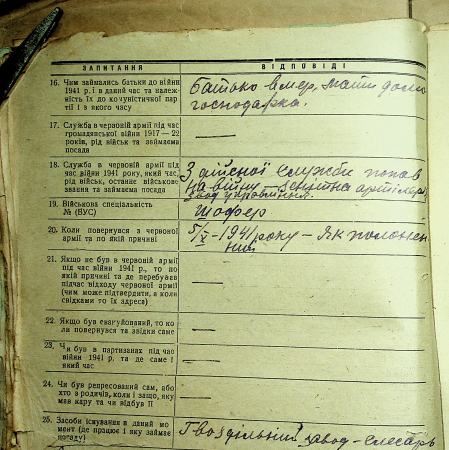 ЗАПИТАННЯ
ВІДПОВІДІ
16. Чим займались батьки до війни
1941 р. і в даний час та належ-
ність їх до комуністичної пар-
тії і в якого часу
Батько вмер, мати домо
господарка.
17. Служба в червоній армії під час
громадянської війни 1917 — 22
років, рід військ та займаєма
посада
—
18. Служба в червоній армії під
час війни 1941 року, який час,
рід військ, останнє військове
звання та займаєма посада
З дійсної служби попав
на війну — зенітна артілерія
19. Військова спеціяльність
№ (ВУС)
Шофер
20. Коли повернувся з червоної
армії та по якій причині
5/X - 1941 року — Як полонен
ний
21. Якщо не був в червоній армії
під час війни 1941 р., то по
якій причині та де перебував
підчас відходу червоної армії
(чим може підтвердити, а коли
свідками то їх адреса)
—
22. Якщо був евакуйований, то ко
ли повернувся та звідки саме
—
23. Чи був в партизанах під час
війни 1941 р. та де саме і
який час
—
24. Чи був репресований сам, або
хто з родичів, коли і защо, яку
мав кару та чи відбув її
—
25. Засоби існування в даний мо
мент (де працює і яку займає
посаду)
Гвоздільний завод - слесарь